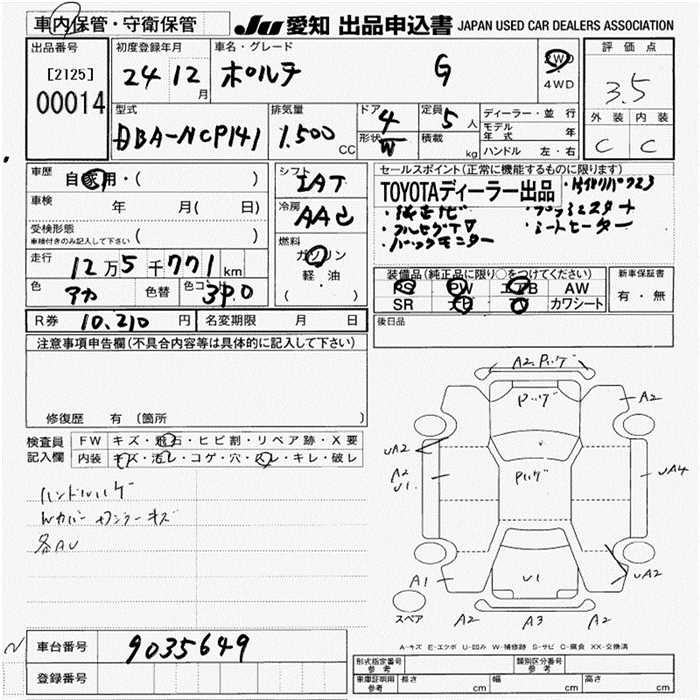 車内保管・守衛保管
JU 愛知 出品申込書 JAPAN USED CAR DEALERS ASSOCIATION
出品番号
[2125]
00014
初度登録年月
24 12 月
車名・グレード
ポルテ G
2WD
4WD
評価点
3.5
外装 内装
C C
型式
DBA-NCP141
排気量
1.500 CC
ドア 4
形状 W
定員 5 人
積載 kg
ディーラー・並行
モデル年式 年
ハンドル 左・右
車歴
自家用・( )
車検 年 月( 日)
受検形態
車検付きのみ記入して下さい ( )
走行 12万5千771km
色 アカ 色替 色コ 3P0
シフト IAT
冷房 AAC
燃料 ガソリン
軽・油
( )
セールスポイント(正常に機能するものに限ります)
TOYOTAディーラー出品
・純正ナビ ・プッシュスタート
・フルセグTV ・シートヒーター
・バックモニター
装備品(純正品に限り○をつけてください)
PS PW エアB AW
SR ナビ TV カワシート
新車保証書
有・無
R券 10,210 円 名変期限 月 日
後日品
注意事項申告欄(不具合内容等は具体的に記入して下さい)
修復歴 有 (箇所 )
検査員 FW キズ・飛石・ヒビ割・リペア跡・X要
記入欄 内装 キズ・汚レ・コゲ・穴・凹レ・キレ・破レ
ハンドルハゲ
Wカバー カウンターキズ
各AU
A2.Pハゲ
Pハゲ
A2
UA2
A2
U1.
Pハゲ
UA4
A1
U1
UA2
スペア
A2
A3
A2
A-キズ E-エクボ U-凹み W-補修跡 S-サビ C-腐食 XX-交換済
車台番号 9035649
登録番号
形式指定番号 参考
類別区分番号 参考
車庫証明用 参考 長さ cm 幅 cm 高さ cm